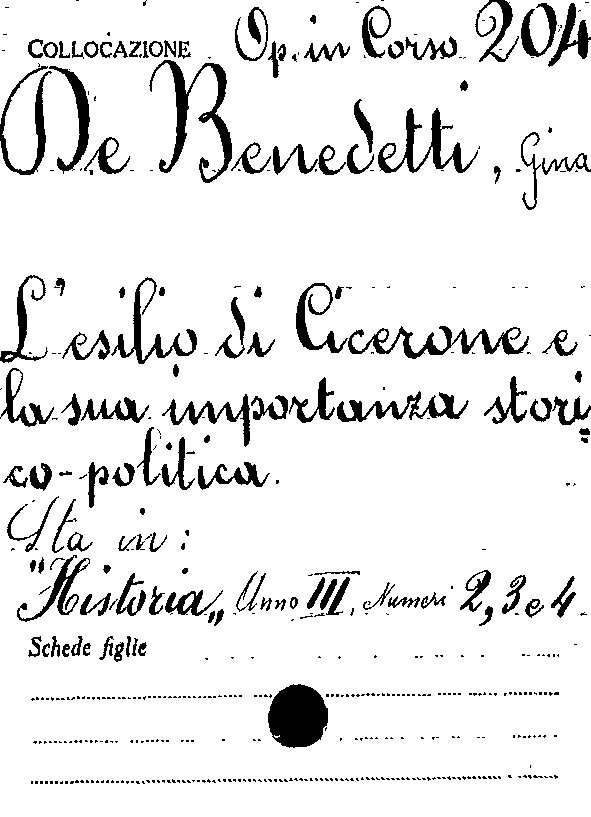 COLLOCAZIONE Op. in Corso 204
De Benedetti, Gina
L'esilio di Cicerone e
la sua importanza stori=
co-politica.
Sta in:
"Historia„ Anno III, Numeri 2, 3 e 4.
Schede figlie